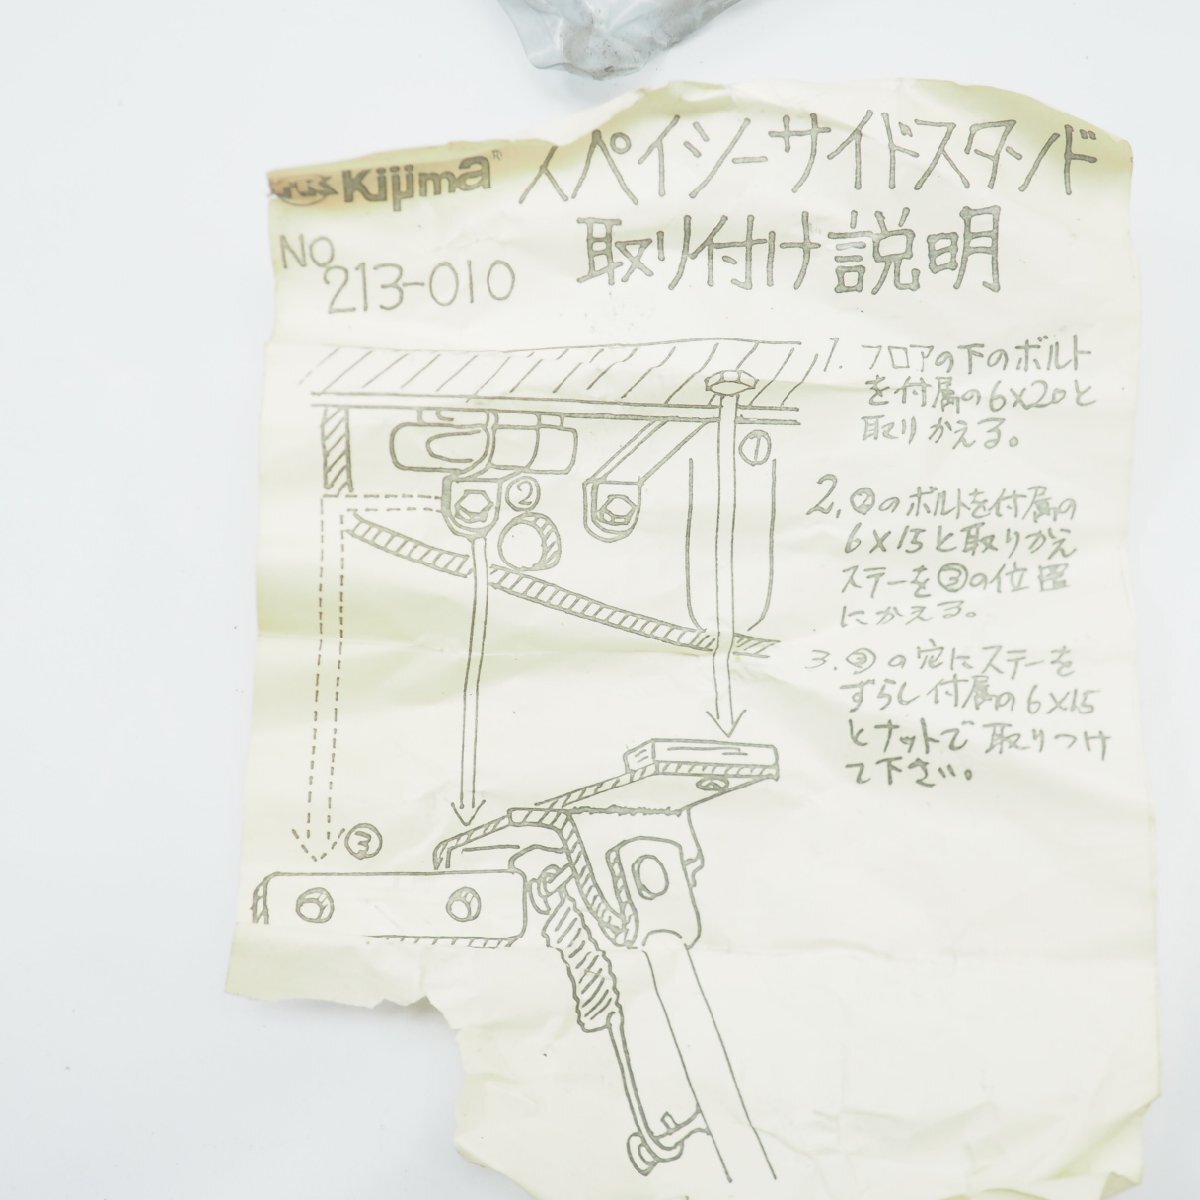 Kijima® スペイシーサイドスタンド
取り付け説明
NO
213-010
1. フロアの下のボルト
を付属の6×20と
取りかえる。
①
②
2. ②のボルトを付属の
6×15と取りかえ
ステーを③の位置
にかえる。
3. ③の穴にステーを
ずらし付属の6×15
とナットで取りつけ
て下さい。
③